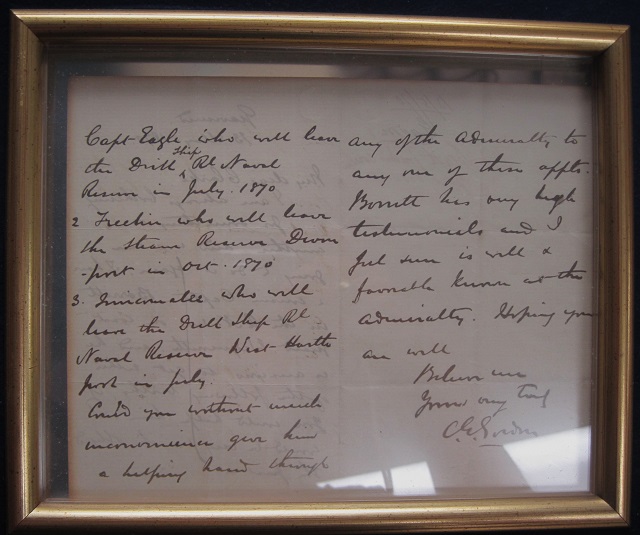 Capt Eagle who will leave
the Drill Ship Rl Naval
Reserve in July. 1870
2 who will leave
the Steam Reserve Devon
-port in Oct. 1870
3. who will
leave the Drill Ship Rl
Naval Reserve West Hartle
pool in July.
Could you without much
inconvenience give him
a helping hand through
any of the Admiralty to
any one of these appts.
has very high
testimonials and I
feel sure is well &
favorable known at the
Admiralty. Hoping you
are well
Believe me
Yours very truly
C.G.Gordon